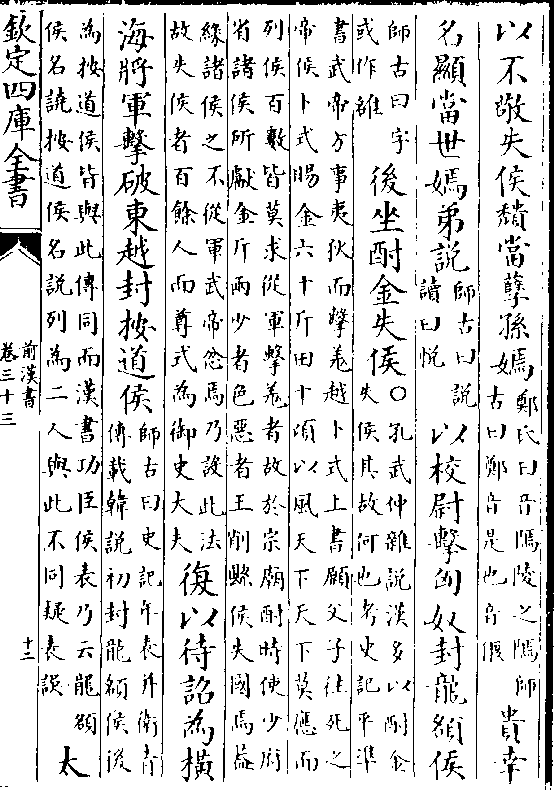 以不敬失侯頽當孽孫嫣鄭氏曰音隖陵之隖師
古曰鄭音是也音偃貴幸
名顯當世嫣弟說師古曰說
讀曰悅以校尉擊匈奴封龍頟侯
師古曰字
或作雒後坐酎金失侯○孔武仲雜說漢多以酎金
失侯其故何也考史記平準
書武帝方事夷狄而擊羗越卜式上書願父子往死之
帝侯卜式賜金六十斤田十頃以風天下天下莫應而
列侯百數皆莫求從軍擊羗者故於宗廟酎時使少府
省諸侯所獻金斤兩少者色惡者王削縣侯失國焉益
緣諸侯之不從軍武帝忿焉乃設此法
故失侯者百餘人而尊式為御史大夫復以待詔為橫
海將軍擊破東越封按道侯師古曰史記年表并衛青
傳載韓說初封龍頟侯後
為按道侯皆與此傳同而漢書功臣侯表乃云龍頟
侯名譊按道侯名說列為二人與此不同疑表誤太
欽定四庫全書
前漢書
卷三十三
十二